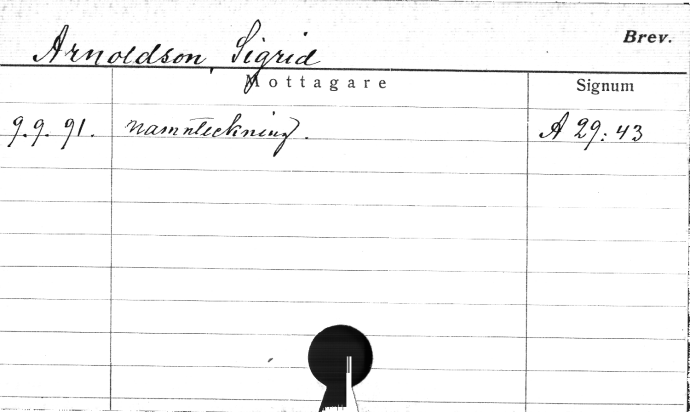 Brev.
Arnoldson, Sigrid
Mottagare Signum
9.9.91. namnteckning. A 29:43